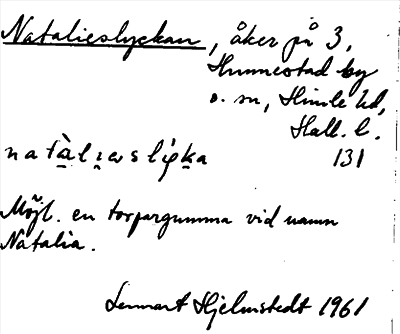 Natalieslyckan, åker på 3,
Hunnestad by
o. sn, Himle hd,
Hall. l.
131
Möjl. en torpargumma vid namn
Natalia.
Lennart Hjelmstedt 1961